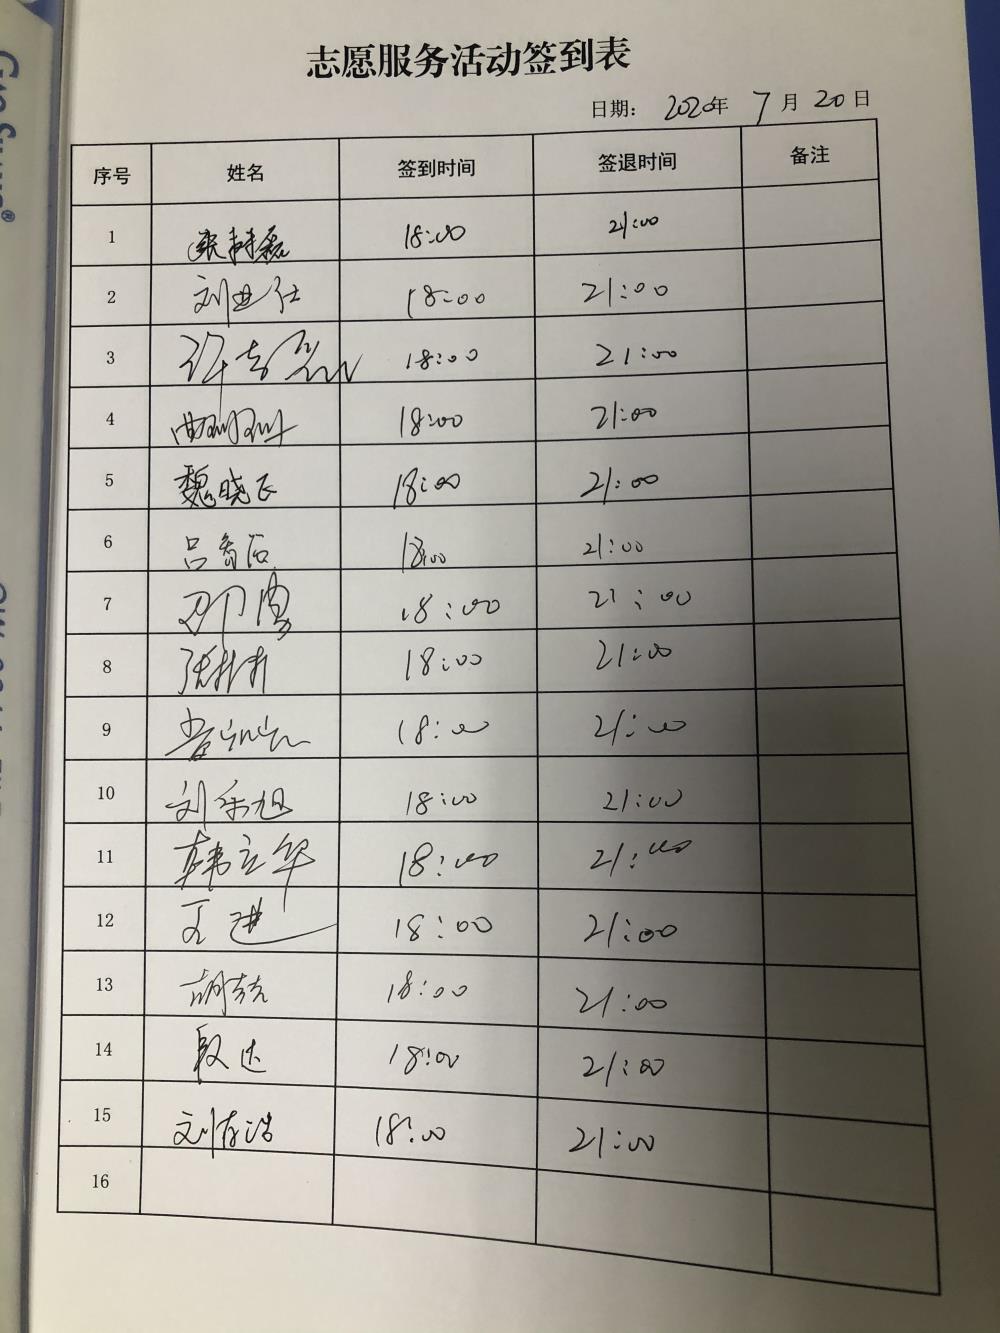 志愿服务活动签到表
日期: 2020年 7月 20日
序号 姓名 签到时间 签退时间 备注
1 18:00 21:00
2 刘业仕 18:00 21:00
3 18:00 21:00
4 18:00 21:00
5 魏晓飞 18:00 21:00
6 18:00 21:00
7 18:00 21:00
8 张莉莉 18:00 21:00
9 18:00 21:00
10 刘乐旭 18:00 21:00
11 韩立华 18:00 21:00
12 王进 18:00 21:00
13 18:00 21:00
14 段达 18:00 21:00
15 刘存浩 18:00 21:00
16